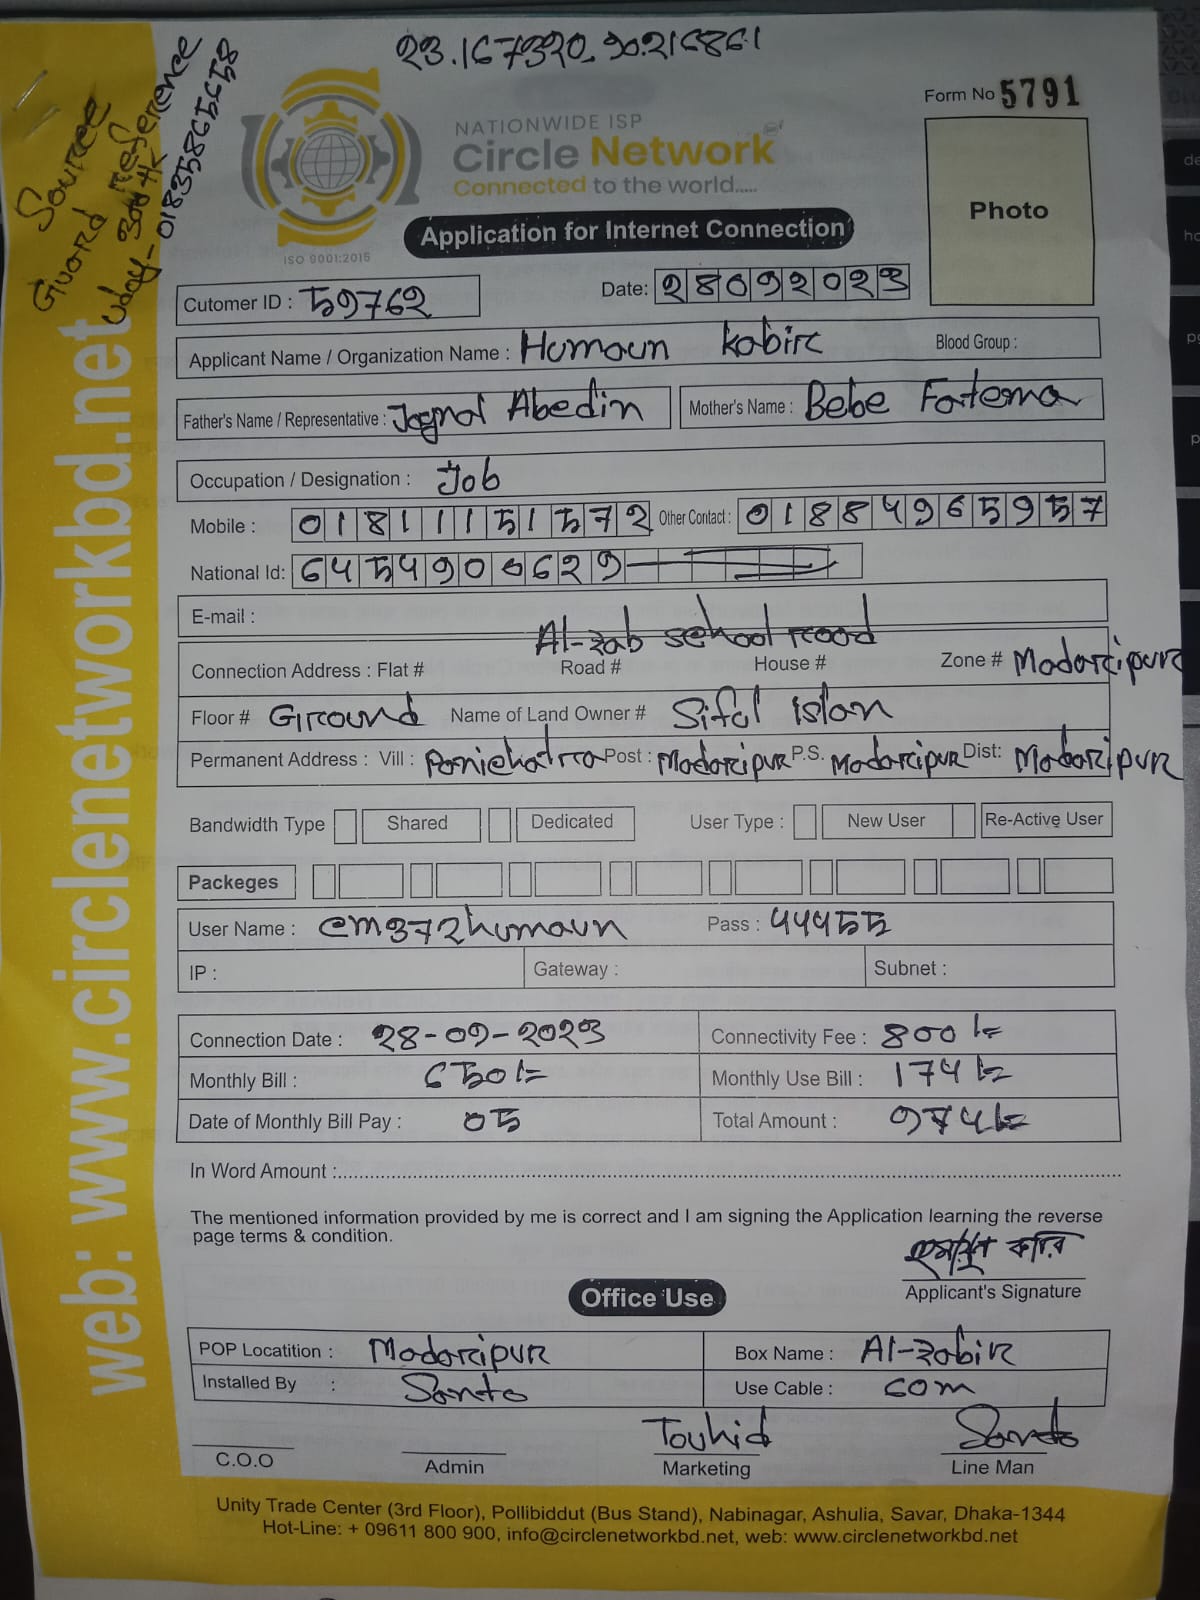 23.167320, 90.216861
Source
Guard reference
300 tk
Uday- 01835865658
Form No 5791
NATIONWIDE ISP
Circle Network
Connected to the world.....
ISO 9001:2015
Photo
Application for Internet Connection
Cutomer ID : 59762
Date: 28092023
Applicant Name / Organization Name : Humaun kabir Blood Group :
Father's Name / Representative : Joynal Abedin Mother's Name : Bebe Fatema
Occupation / Designation : Job
Mobile : 01811151572 Other Contact : 01884965957
National Id: 6454900629
E-mail :
Al-zab school road
Connection Address : Flat # Road # House # Zone # Madaripur
Floor # Ground Name of Land Owner # Siful islan
Permanent Address : Vill : Panichatra Post : Madaripur P.S. Madaripur Dist: Madaripur
Bandwidth Type Shared Dedicated User Type : New User Re-Active User
Packeges
User Name : cm372humaun Pass : 44455
IP : Gateway : Subnet :
Connection Date : 28-09-2023 Connectivity Fee : 800/=
Monthly Bill : 650/= Monthly Use Bill : 174/=
Date of Monthly Bill Pay : 05 Total Amount : 974/=
In Word Amount :
The mentioned information provided by me is correct and I am signing the Application learning the reverse
page terms & condition.
হুমায়ুন কবির
Applicant's Signature
Office Use
POP Locatition : Madaripur Box Name : Al-zabir
Installed By : Santo Use Cable : 60m
Touhid Santo
C.O.O Admin Marketing Line Man
Unity Trade Center (3rd Floor), Pollibiddut (Bus Stand), Nabinagar, Ashulia, Savar, Dhaka-1344
Hot-Line: + 09611 800 900, info@circlenetworkbd.net, web: www.circlenetworkbd.net
web: www.circlenetworkbd.net